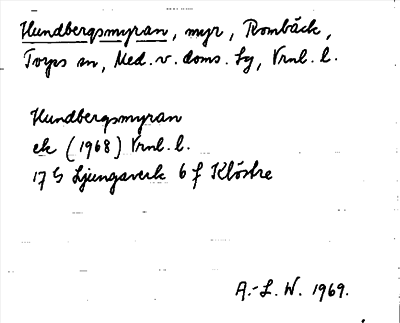 Hundbergsmyran, myr, Rombäck,
Torps sn, Med. v. doms. lg, Vrnl. l.
Hundbergsmyran
ek (1968) Vrnl. l.
17 G Ljungaverk 6 f Klöstre
A.-L. W. 1969.